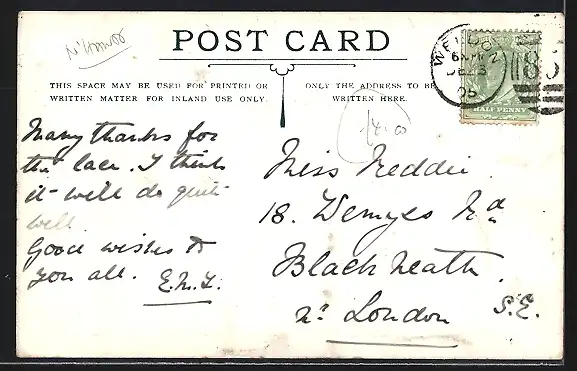 POST CARD
THIS SPACE MAY BE USED FOR PRINTED OR
WRITTEN MATTER FOR INLAND USE ONLY.
ONLY THE ADDRESS TO BE
WRITTEN HERE.
HALF PENNY
85
Many thanks for
the lace. I think
it will do quite
well.
Good wishes to
you all.
Miss Neddie.
18. Wemyss Rd
Blackheath.
nr London S.E.